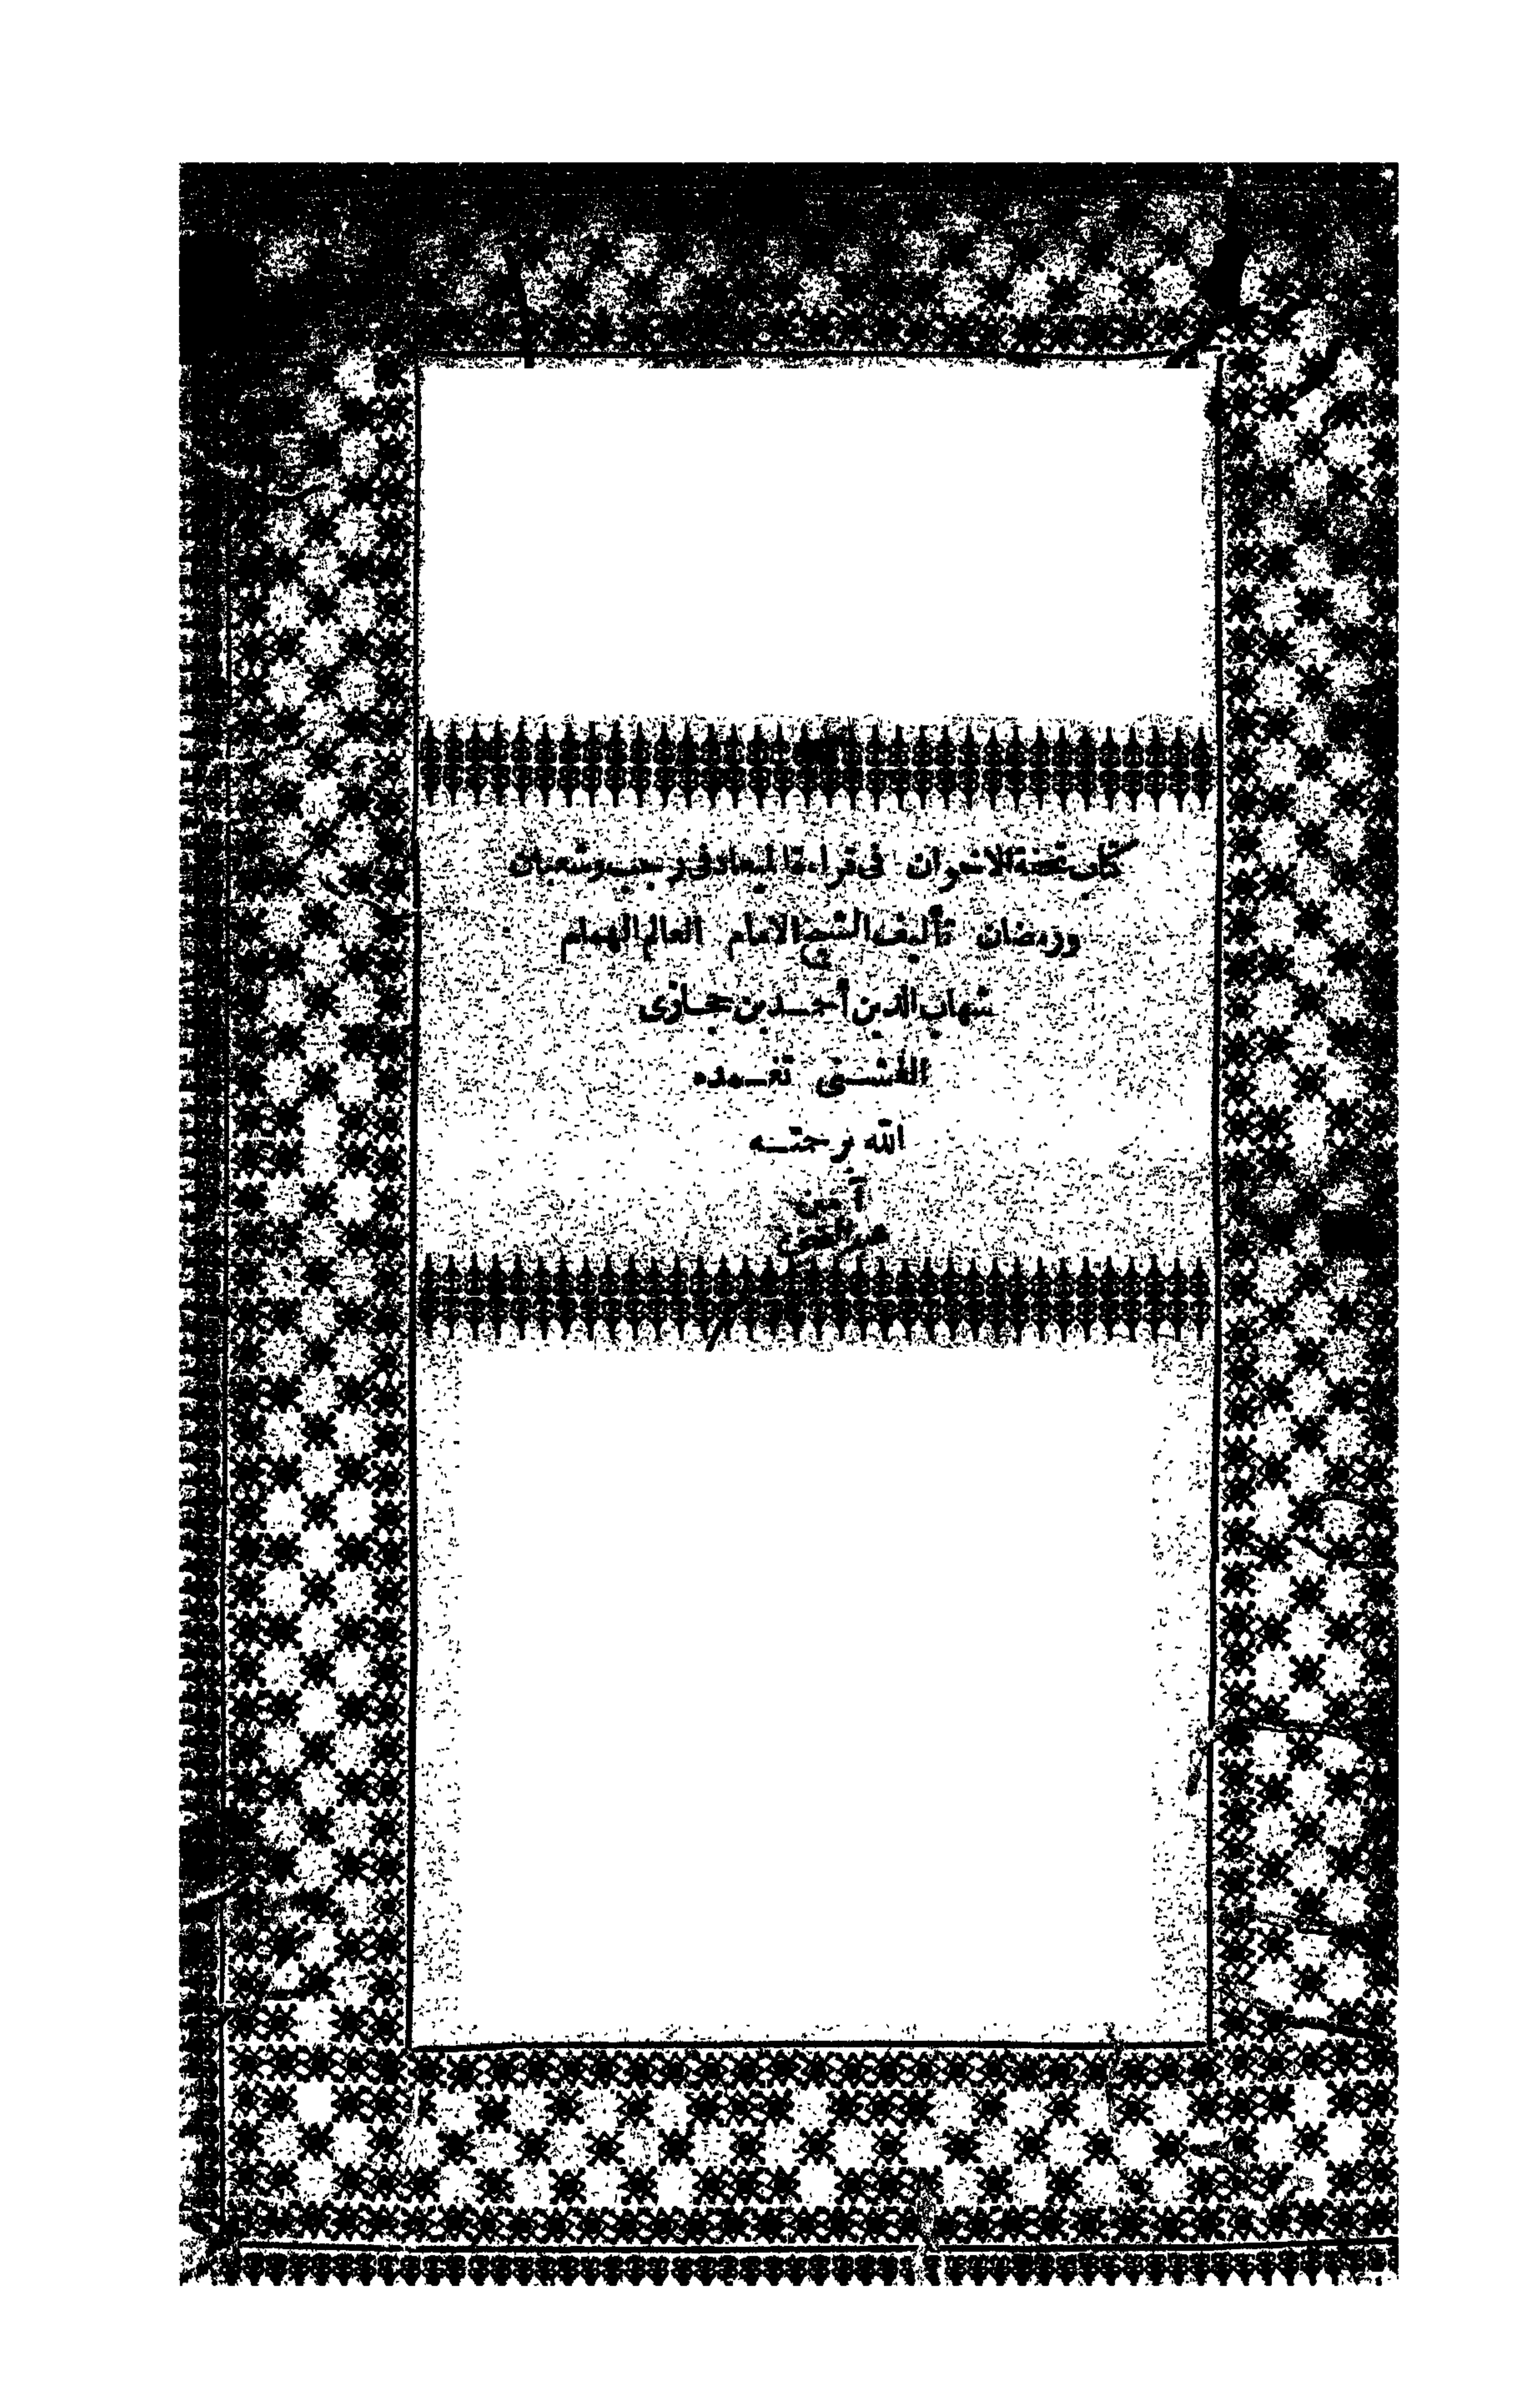 كتاب تحفة الاخوان فى قراءة الميعاد فى رجب وشعبان
ورمضان تأليف الشيخ الامام العالم الهمام
شهاب الدين أحمد بن حجازى
الفشنى تغمده
الله برحمته
آمين